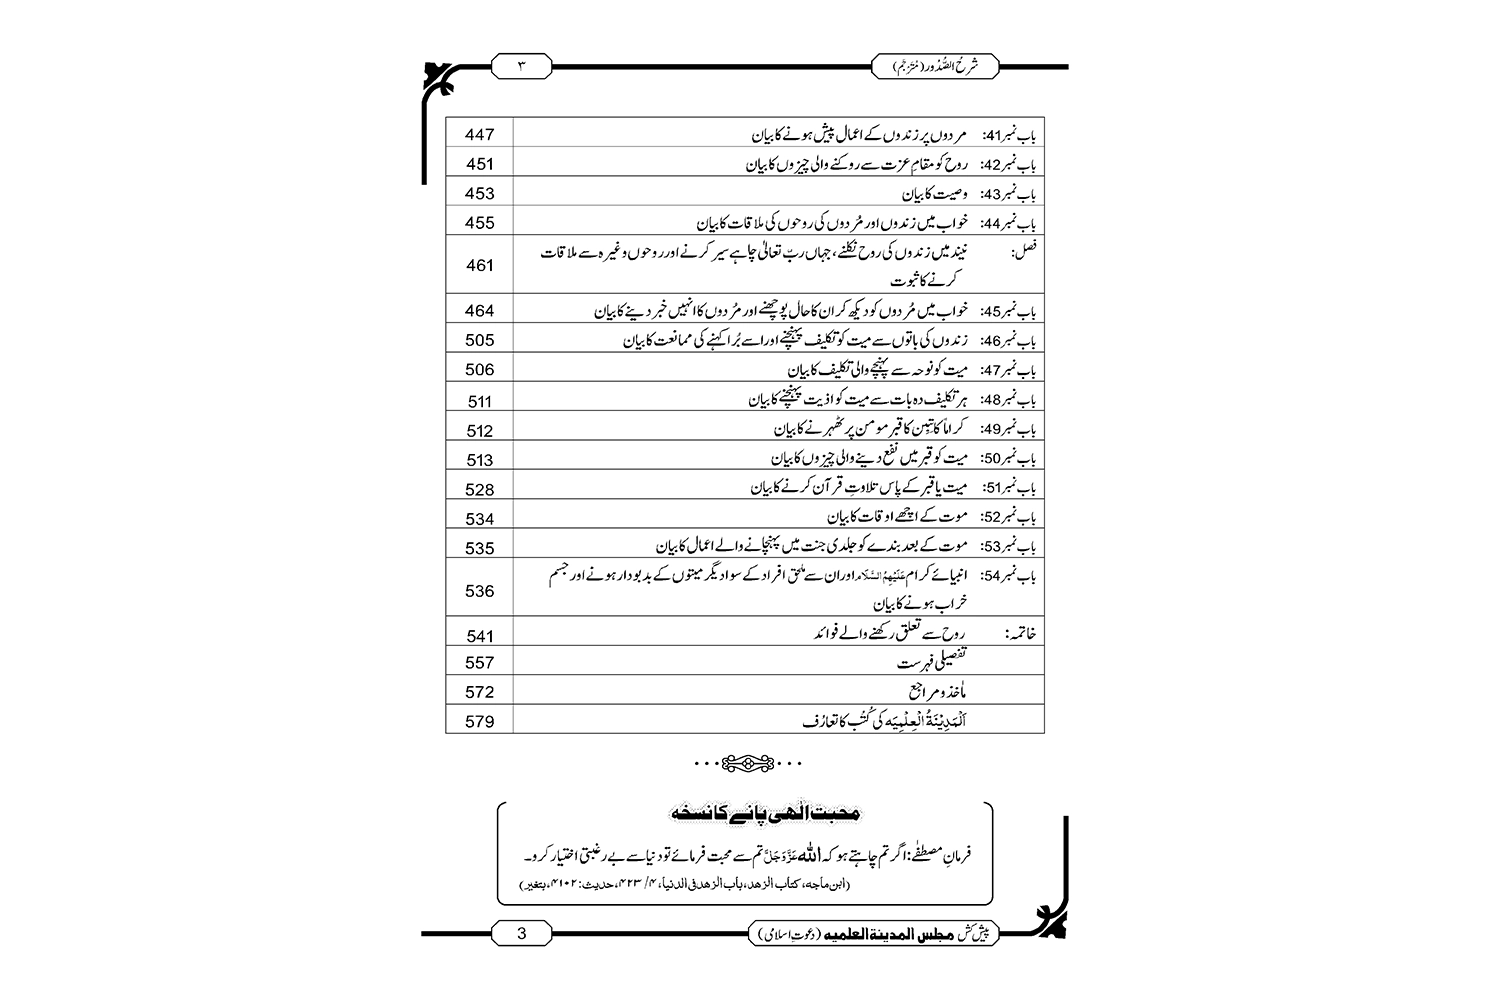 شرحُ الصُّدُور (مُتَرْجَم) ۳
باب نمبر41: مردوں پر زندوں کے اعمال پیش ہونے کا بیان 447
باب نمبر42: روح کو مقامِ عزت سے روکنے والی چیزوں کا بیان 451
باب نمبر43: وصیت کا بیان 453
باب نمبر44: خواب میں زندوں اور مُردوں کی روحوں کی ملاقات کا بیان 455
فصل: نیند میں زندوں کی روح نکلنے، جہاں ربّ تعالیٰ چاہے سیر کرنے اور روحوں وغیرہ سے ملاقات
کرنے کا ثبوت 461
باب نمبر45: خواب میں مُردوں کو دیکھ کر ان کا حال پوچھنے اور مُردوں کا انہیں خبر دینے کا بیان 464
باب نمبر46: زندوں کی باتوں سے میت کو تکلیف پہنچنے اور اسے بُرا کہنے کی ممانعت کا بیان 505
باب نمبر47: میت کو نوحہ سے پہنچے والی تکلیف کا بیان 506
باب نمبر48: ہر تکلیف دہ بات سے میت کو اذیت پہنچنے کا بیان 511
باب نمبر49: کراماً کاتبین کا قبرِ مومن پر ٹھہرنے کا بیان 512
باب نمبر50: میت کو قبر میں نفع دینے والی چیزوں کا بیان 513
باب نمبر51: میت یا قبر کے پاس تلاوتِ قرآن کرنے کا بیان 528
باب نمبر52: موت کے اچھے اوقات کا بیان 534
باب نمبر53: موت کے بعد بندے کو جلدی جنت میں پہنچانے والے اعمال کا بیان 535
باب نمبر54: انبیائے کرام عَلَیْہِمُ السَّلَام اور ان سے ملحق افراد کے سوا دیگر میتوں کے بدبودار ہونے اور جسم
خراب ہونے کا بیان 536
خاتمہ: روح سے تعلق رکھنے والے فوائد 541
تفصیلی فہرست 557
ماٰخذ و مراجع 572
اَلْمَدِیْنَۃُ الْعِلْمِیَہ کی کُتُب کا تعارُف 579
محبت الٰھی پانے کا نسخہ
فرمانِ مصطفٰے: اگر تم چاہتے ہو کہ اللہ عَزَّوَجَلَّ تم سے محبت فرمائے تو دنیا سے بے رغبتی اختیار کرو۔
(ابن ماجه، كتاب الزهد، باب الزهد فی الدنیا، ۴/ ۴۲۳، حدیث: ۴۱۰۲، بتغیر)
پیش کش مجلس المدینۃ العلمیہ (دعوتِ اسلامی) 3